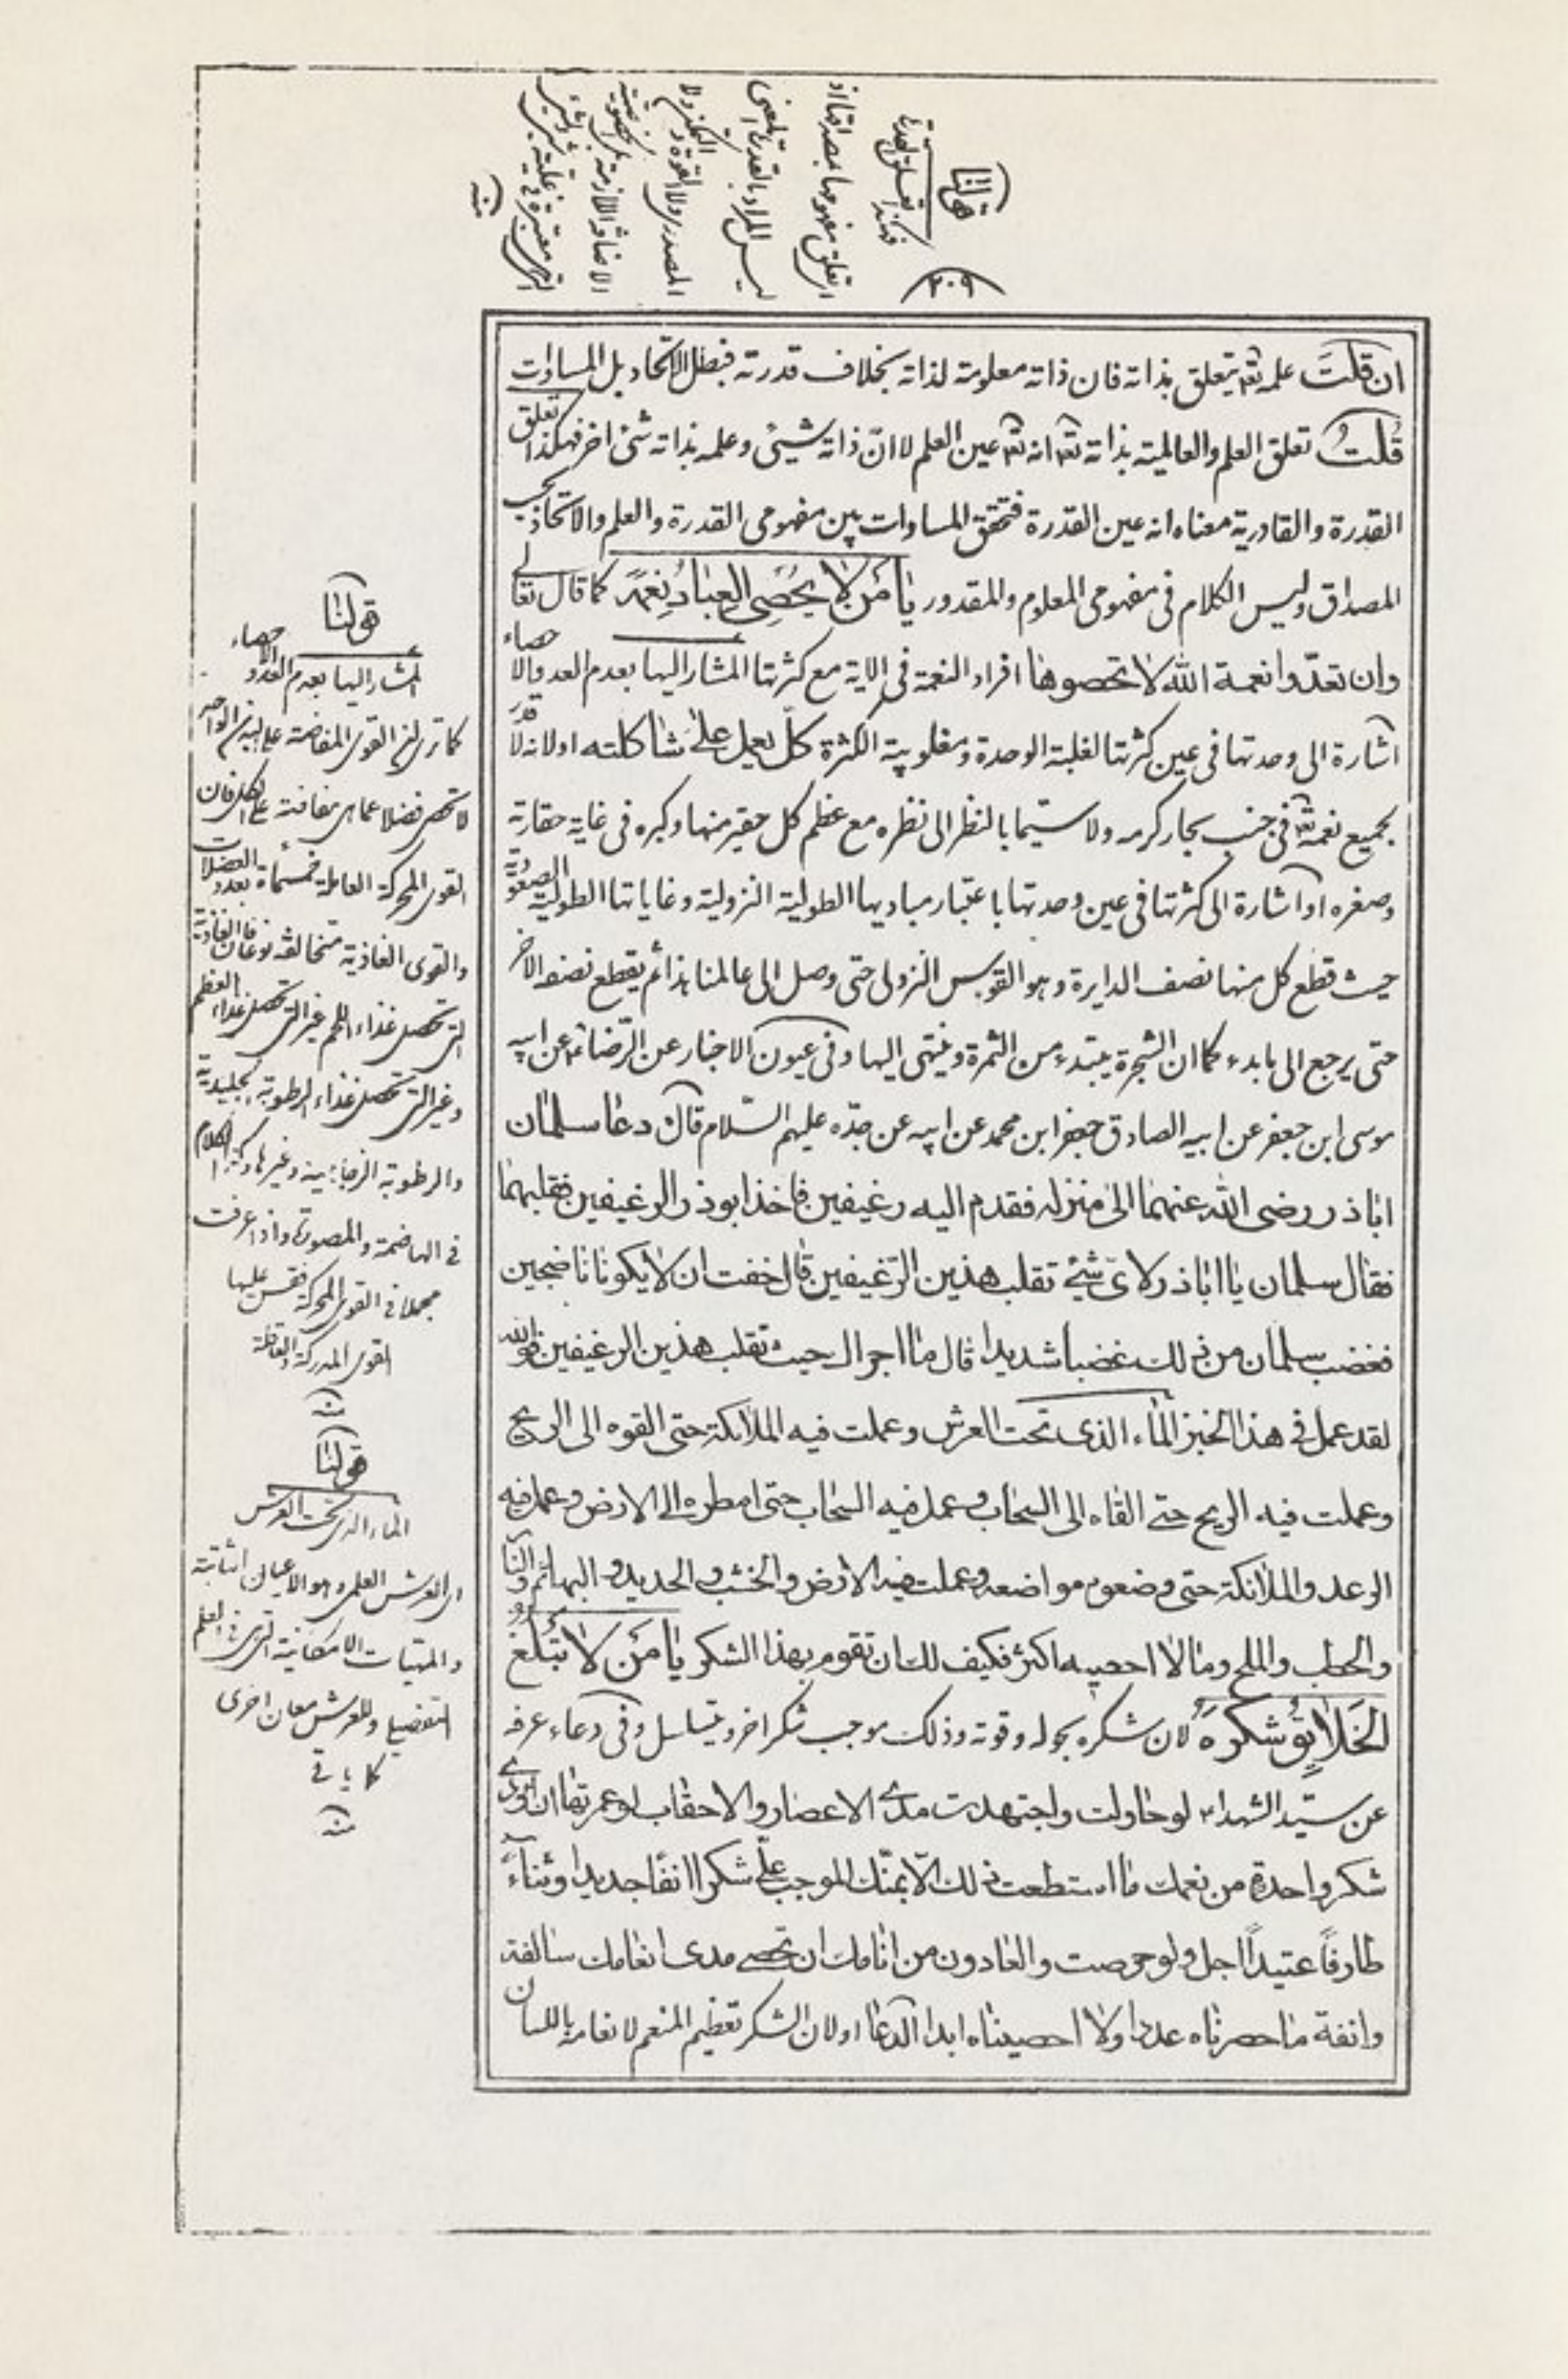 ٢٠٩
قولنا
فهكذا تعلق القدرة
ان قلت علمه تعالى يتعلق بذاته فان ذاته معلومة لذاته بخلاف قدرته فبطل الاتحاد بل المساوات
قلت تعلق العلم والعالمية بذاته تعالى انه تعالى عين العلم لا ان ذاته شيئ وعلمه بذاته شئ اخر فهكذا تعلق
القدرة والقادرية معناه انه عين القدرة فتحقق المساوات بين مفهومى القدرة والعلم والاتحاد بحسب
المصداق وليس الكلام فى مفهومى المعلوم والمقدور يا من لا يحصى العباد نعمه كما قال تعالى
وان تعدوا نعمة الله لا تحصوها افراد النعمة فى الاية مع كثرتها المشار اليها بعدم العد والاحصاء
اشارة الى وحدتها فى عين كثرتها لغلبة الوحدة ومغلوبية الكثرة كل يعمل على شاكلته او لانه لا قدر
بجميع نعمه تعالى فى جنب بحار كرمه ولا سيما بالنظر الى نظره مع عظم كل حقير منها وكبره فى غاية حقارته
وصغره او اشارة الى كثرتها فى عين وحدتها باعتبار مباديها الطولية النزولية وغاياتها الطولية الصعودية
حيث قطع كل منها نصف الدايرة وهو القوس النزولى حتى وصل الى عالمنا هذا ثم يقطع نصفه الاخر
حتى يرجع الى ما بدء كما ان الشجرة يبتدء من الثمرة وينتهى اليها وفى عيون الاخبار عن الرضا ع عن ابيه
موسى ابن جعفر عن ابيه الصادق جعفر ابن محمد عن ابيه عن جده عليهم السلام قال دعا سلمان
اباذر رضى الله عنهما الى منزله فقدم اليه رغيفين فاخذ ابوذر الرغيفين فقلبهما
فقال سلمان يا اباذر لاى شئ تقلب هذين الرغيفين قال خفت ان لا يكونا ناضجين
فغضب سلمان من ذلك غضبا شديدا قال ما اجراك حيث تقلب هذين الرغيفين فوالله
لقد عمل فى هذا الخبز الماء الذى تحت العرش وعملت فيه الملائكة حتى القوه الى الريح
وعملت فيه الريح حتى القاه الى السحاب وعمل فيه السحاب حتى امطره الى الارض وعمل فيه
الرعد والملائكة حتى وضعوه مواضعه وعملت فيه الارض والخشب والحديد والبهائم والنار
والحطب والملح وما لا احصيه اكثر فكيف لك ان تقوم بهذا الشكر يا من لا تبلغ
الخلايق شكره لان شكره بحوله وقوته وذلك موجب شكر اخر ويتسلسل وفى دعاء عرفه
عن سيد الشهداء ع لو حاولت واجتهدت مدى الاعصار والاحقاب لو عمرتها ان اؤدى
شكر واحدة من نعمك ما استطعت ذلك الا بمنك الموجب على شكرا انفا جديدا وثناء
طارفا عتيدا اجل ولو حرصت والعادون من انامك ان نحصى مدى انعامك سالفة
وانفة ما حصرناه عددا ولا احصيناه ابدا الدعا او لان الشكر تعظيم المنعم لانعامه باللسان
قولنا
المشار اليها بعدم العد والاحصاء
كما ترى ان القوى المفاضة على البدن الواحد
لا تحصى فضلا عما هى مفاضة على الكل فان
القوى المحركة العاملة خمسمأة بعدد العضلات
والقوى الغاذية متخالفة نوعا فان الغاذية
التى تحصل غذاء اللحم غير التى تحصل غذاء العظم
وغير التى تحصل غذاء الرطوبة الجليدية
والرطوبة الزجاجية وغيرها وكذا الكلام
فى الهاضمة والمصورة واذا عرفت
مجملا فى القوى المحركة فقس عليها
القوى المدركة
منه
قولنا
الماء الذى تحت العرش
اى العرش العلمى وهو الاعيان الثابتة
والمهيات الامكانية التى فى العلم
التفصيلى وللعرش معان اخرى
كما ياتى
منه